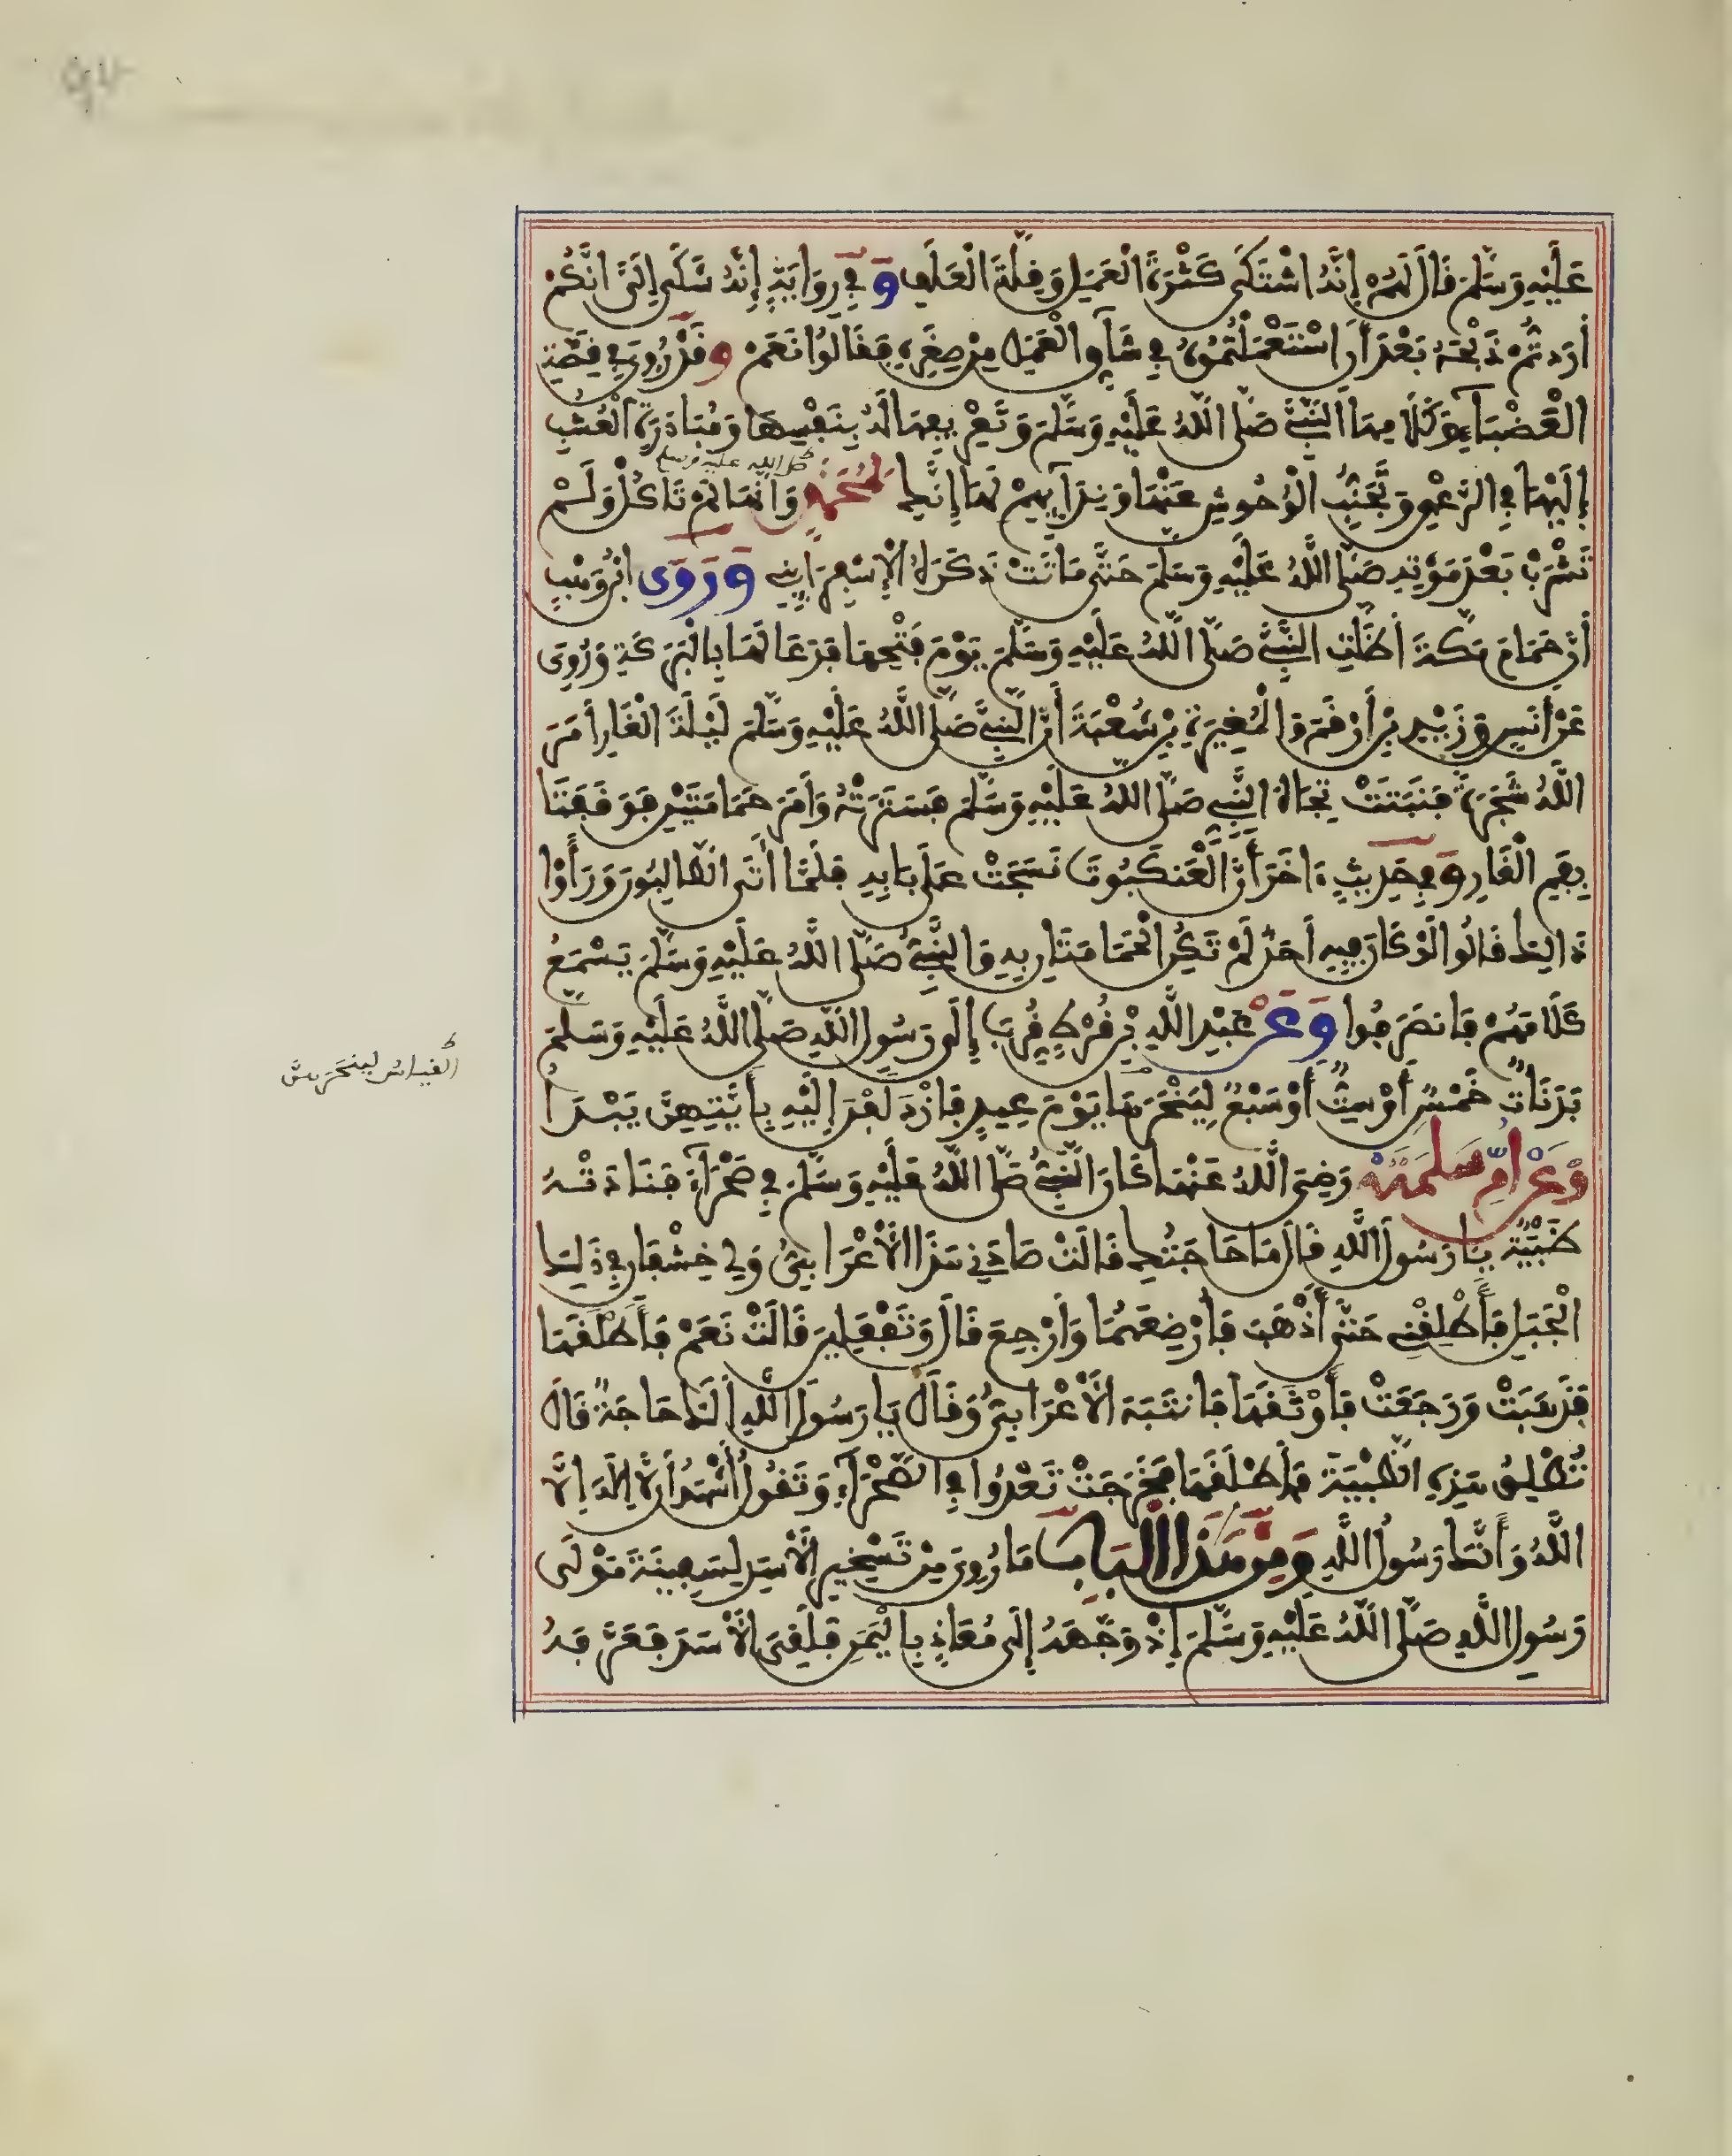 عَلَيْهِ وَسَلَّمَ قَالَ لَهُمْ إِنَّهُ اشْتَكَى كَثْرَةَ الْعَمَلِ وَقِلَّةَ الْعَلَفِ وَفِي رِوَايَةٍ إِنَّهُ شَكَى إِلَيَّ انَّكُمْ
أَرَدتُّمْ ذَبْحَهُ بَعْدَ أَنِ اسْتَعْمَلْتُمُوهُ فِي شَآقِّ الْعَمَلِ مِنْ صِغَرِهِ فَقَالُوا نَعَمْ وَقَدْ رُوِيَ فِي قِصَّةِ
الْعَضْبَآءِ وَكَلَامِهَا النَّبِيَّ صَلَّى اللَّهُ عَلَيْهِ وَسَلَّمَ وَتَعْرِيفِهَا لَهُ بِنَفْسِهَا وَمُبَادَرَةِ الْعُشْبِ
إِلَيْهَا فِي الرَّعْيِ وَتَجَنُّبِ الْوُحُوشِ عَنْهَا وَنِدَآئِهِمْ لَهَا إِنَّكِ لِمُحَمَّدٍ وَأَنَّهَا لَمْ تَاكُلْ وَلَمْ
صلى الله عليه وسلم
تَشْرَبْ بَعْدَ مَوْتِهِ صَلَّى اللَّهُ عَلَيْهِ وَسَلَّمَ حَتَّى مَاتَتْ ذَكَرَهُ الْإِسْفِرَايِنِي وَرَوَى ابْنُ وَهْبٍ
أَنَّ حَمَامَ مَكَّةَ أَظَلَّتِ النَّبِيَّ صَلَّى اللَّهُ عَلَيْهِ وَسَلَّمَ يَوْمَ فَتْحِهَا فَدَعَا لَهَا بِالْبَرَكَةِ وَرُوِيَ
عَنْ أَنَسٍ وَزَيْدِ بْنِ أَرْقَمَ وَالْمُغِيرَةِ بْنِ شُعْبَةَ أَنَّ النَّبِيَّ صَلَّى اللَّهُ عَلَيْهِ وَسَلَّمَ لَيْلَةَ الْغَارِ أَمَرَ
اللَّهُ شَجَرَةً فَنَبَتَتْ تِجَاهَ النَّبِيِّ صَلَّى اللَّهُ عَلَيْهِ وَسَلَّمَ فَسَتَرَتْهُ وَأَمَرَ حَمَامَتَيْنِ فَوَقَفَتَا
بِفَمِ الْغَارِ وَفِي حَدِيثٍ ءَاخَرَ أَنَّ الْعَنكَبُوتَ نَسَجَتْ عَلَى بَابِهِ فَلَمَّا أَتَى الطَّالِبُونَ وَرَأَوْا
ذَالِكَ قَالُوا لَوْ كَانَ فِيهِ أَحَدٌ لَمْ تَكُنِ الْحَمَامَتَانِ بِهِ وَالنَّبِيُّ صَلَّى اللَّهُ عَلَيْهِ وَسَلَّمَ يَسْمَعُ
كَلَامَهُمْ فَانصَرَفُوا وَعَنْ عَبْدِ اللَّهِ بْنِ قُرْطٍ قُرِّبَ إِلَى رَسُولِ اللَّهِ صَلَّى اللَّهُ عَلَيْهِ وَسَلَّمَ
بَدَنَاتٌ خَمْسٌ أَوْ سِتٌّ أَوْ سَبْعٌ لِيَنْحَرَهَا يَوْمَ عِيدٍ فَازْدَلَفْنَ إِلَيْهِ بِأَيَّتِهِنَّ يَبْدَأُ
وَعَنْ أُمِّ سَلَمَةَ رَضِيَ اللَّهُ عَنْهَا كَانَ النَّبِيُّ صَلَّى اللَّهُ عَلَيْهِ وَسَلَّمَ فِي صَحْرَآءَ فَنَادَتْهُ
ظَبْيَةٌ يَا رَسُولَ اللَّهِ قَالَ مَا حَاجَتُكِ قَالَتْ صَادَنِي هَذَا الْأَعْرَابِيُّ وَلِي خِشْفَانِ فِي ذَلِكَ
الْجَبَلِ فَأَطْلِقْنِي حَتَّى أَذْهَبَ فَأُرْضِعَهُمَا وَأَرْجِعَ قَالَ وَتَفْعَلِينَ قَالَتْ نَعَمْ فَأَطْلَقَهَا
فَذَهَبَتْ وَرَجَعَتْ فَأَوْثَقَهَا فَانتَبَهَ الْأَعْرَابِيُّ وَقَالَ يَا رَسُولَ اللَّهِ أَلَكَ حَاجَةٌ قَالَ
تُطْلِقُ هَذِهِ الظَّبْيَةَ فَأَطْلَقَهَا فَخَرَجَتْ تَعْدُوا فِي الصَّحْرَآءِ وَتَقُولُ أَشْهَدُ أَن لَّا إِلَهَ إِلَّا
اللَّهُ وَأَنَّكَ رَسُولُ اللَّهِ وَمِنْ هَذَا الْبَابِ مَا رُوِيَ مِنْ تَسْخِيرِ الْأَسَدِ لِسَفِينَةَ مَوْلَى
رَسُولِ اللَّهِ صَلَّى اللَّهُ عَلَيْهِ وَسَلَّمَ إِذْ وَجَّهَهُ إِلَى مُعَاذٍ بِالْيَمَنِ فَلَقِيَ الْأَسَدَ فَعَرَّفَهُ
القياس لينحرهن